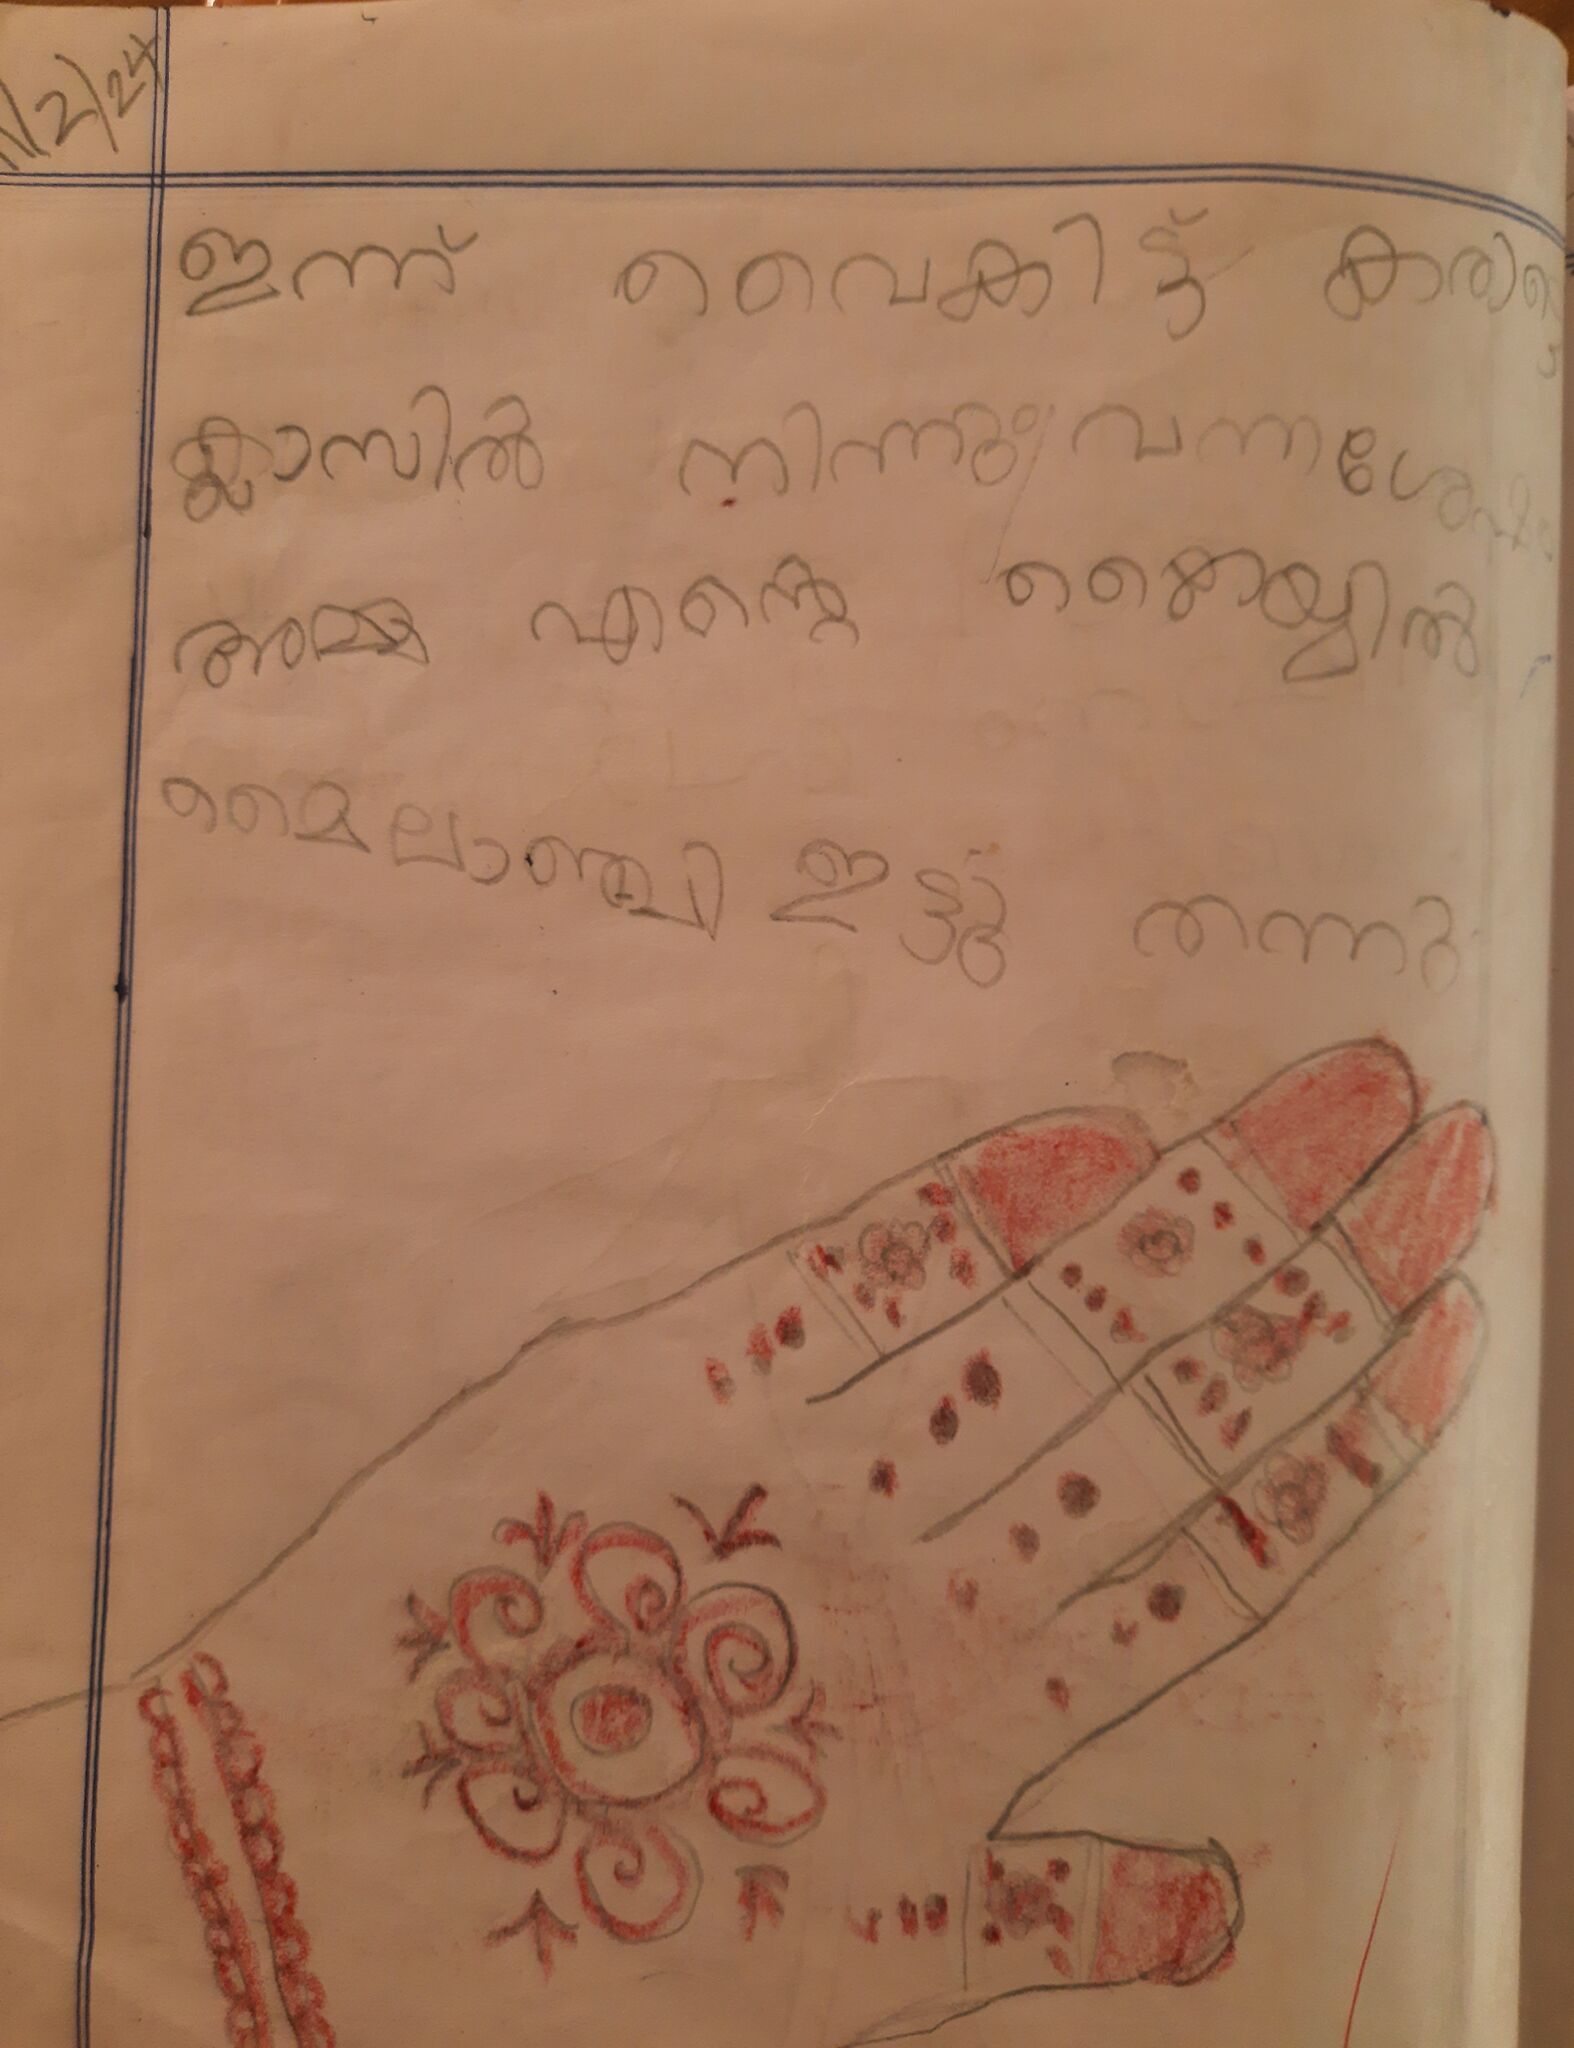 /2/24
ഇന്ന് വൈകിട്ട്
ക്ലാസിൽ നിന്നും വന്നശേഷം
അമ്മ എന്റെ കൈയ്യിൽ
മൈലാഞ്ചി ഇട്ടു തന്നു